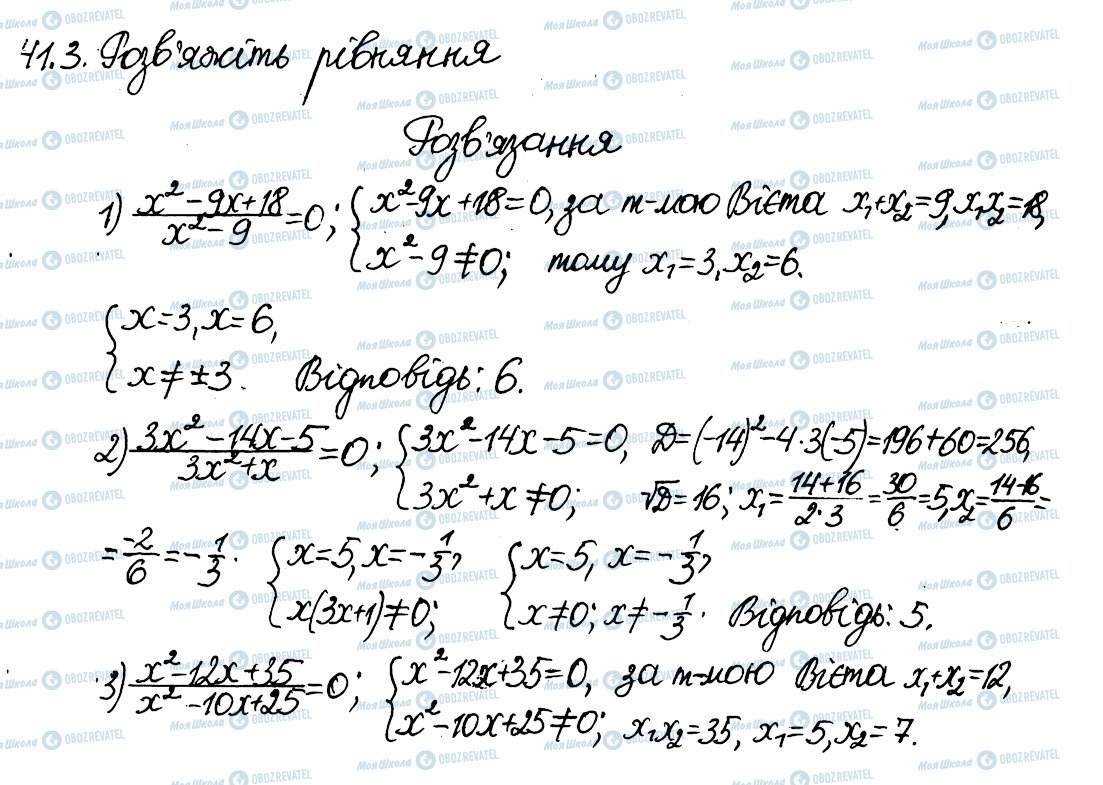 41.3. Розв'яжіть рівняння
Розв'язання
1) (x² - 9x + 18)/(x² - 9) = 0; { x² - 9x + 18 = 0, за т-мою Вієта x₁ + x₂ = 9, x₁x₂ = 18,
x² - 9 ≠ 0; тому x₁ = 3, x₂ = 6.
{ x = 3, x = 6,
x ≠ ±3. Відповідь: 6.
2) (3x² - 14x - 5)/(3x² + x) = 0; { 3x² - 14x - 5 = 0, D = (-14)² - 4·3(-5) = 196 + 60 = 256,
3x² + x ≠ 0; √D = 16; x₁ = (14 + 16)/(2·3) = 30/6 = 5, x₂ = (14 - 16)/6 =
= -2/6 = -1/3. { x = 5, x = -1/3, { x = 5, x = -1/3,
x(3x + 1) ≠ 0; x ≠ 0; x ≠ -1/3. Відповідь: 5.
3) (x² - 12x + 35)/(x² - 10x + 25) = 0; { x² - 12x + 35 = 0, за т-мою Вієта x₁ + x₂ = 12,
x² - 10x + 25 ≠ 0; x₁x₂ = 35, x₁ = 5, x₂ = 7.
Моя Школа OBOZREVATEL